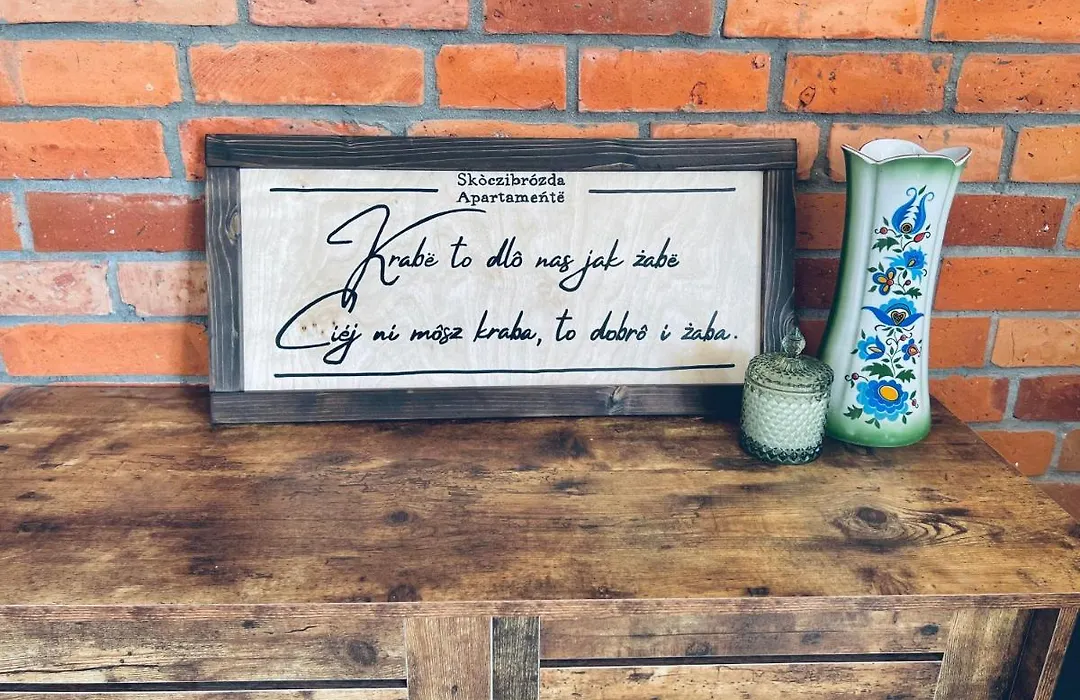 Skòczibrózda
Apartameńtë
Krabë to dlô nas jak żabë
Ciéj ni môsz kraba, to dobrô i żaba.